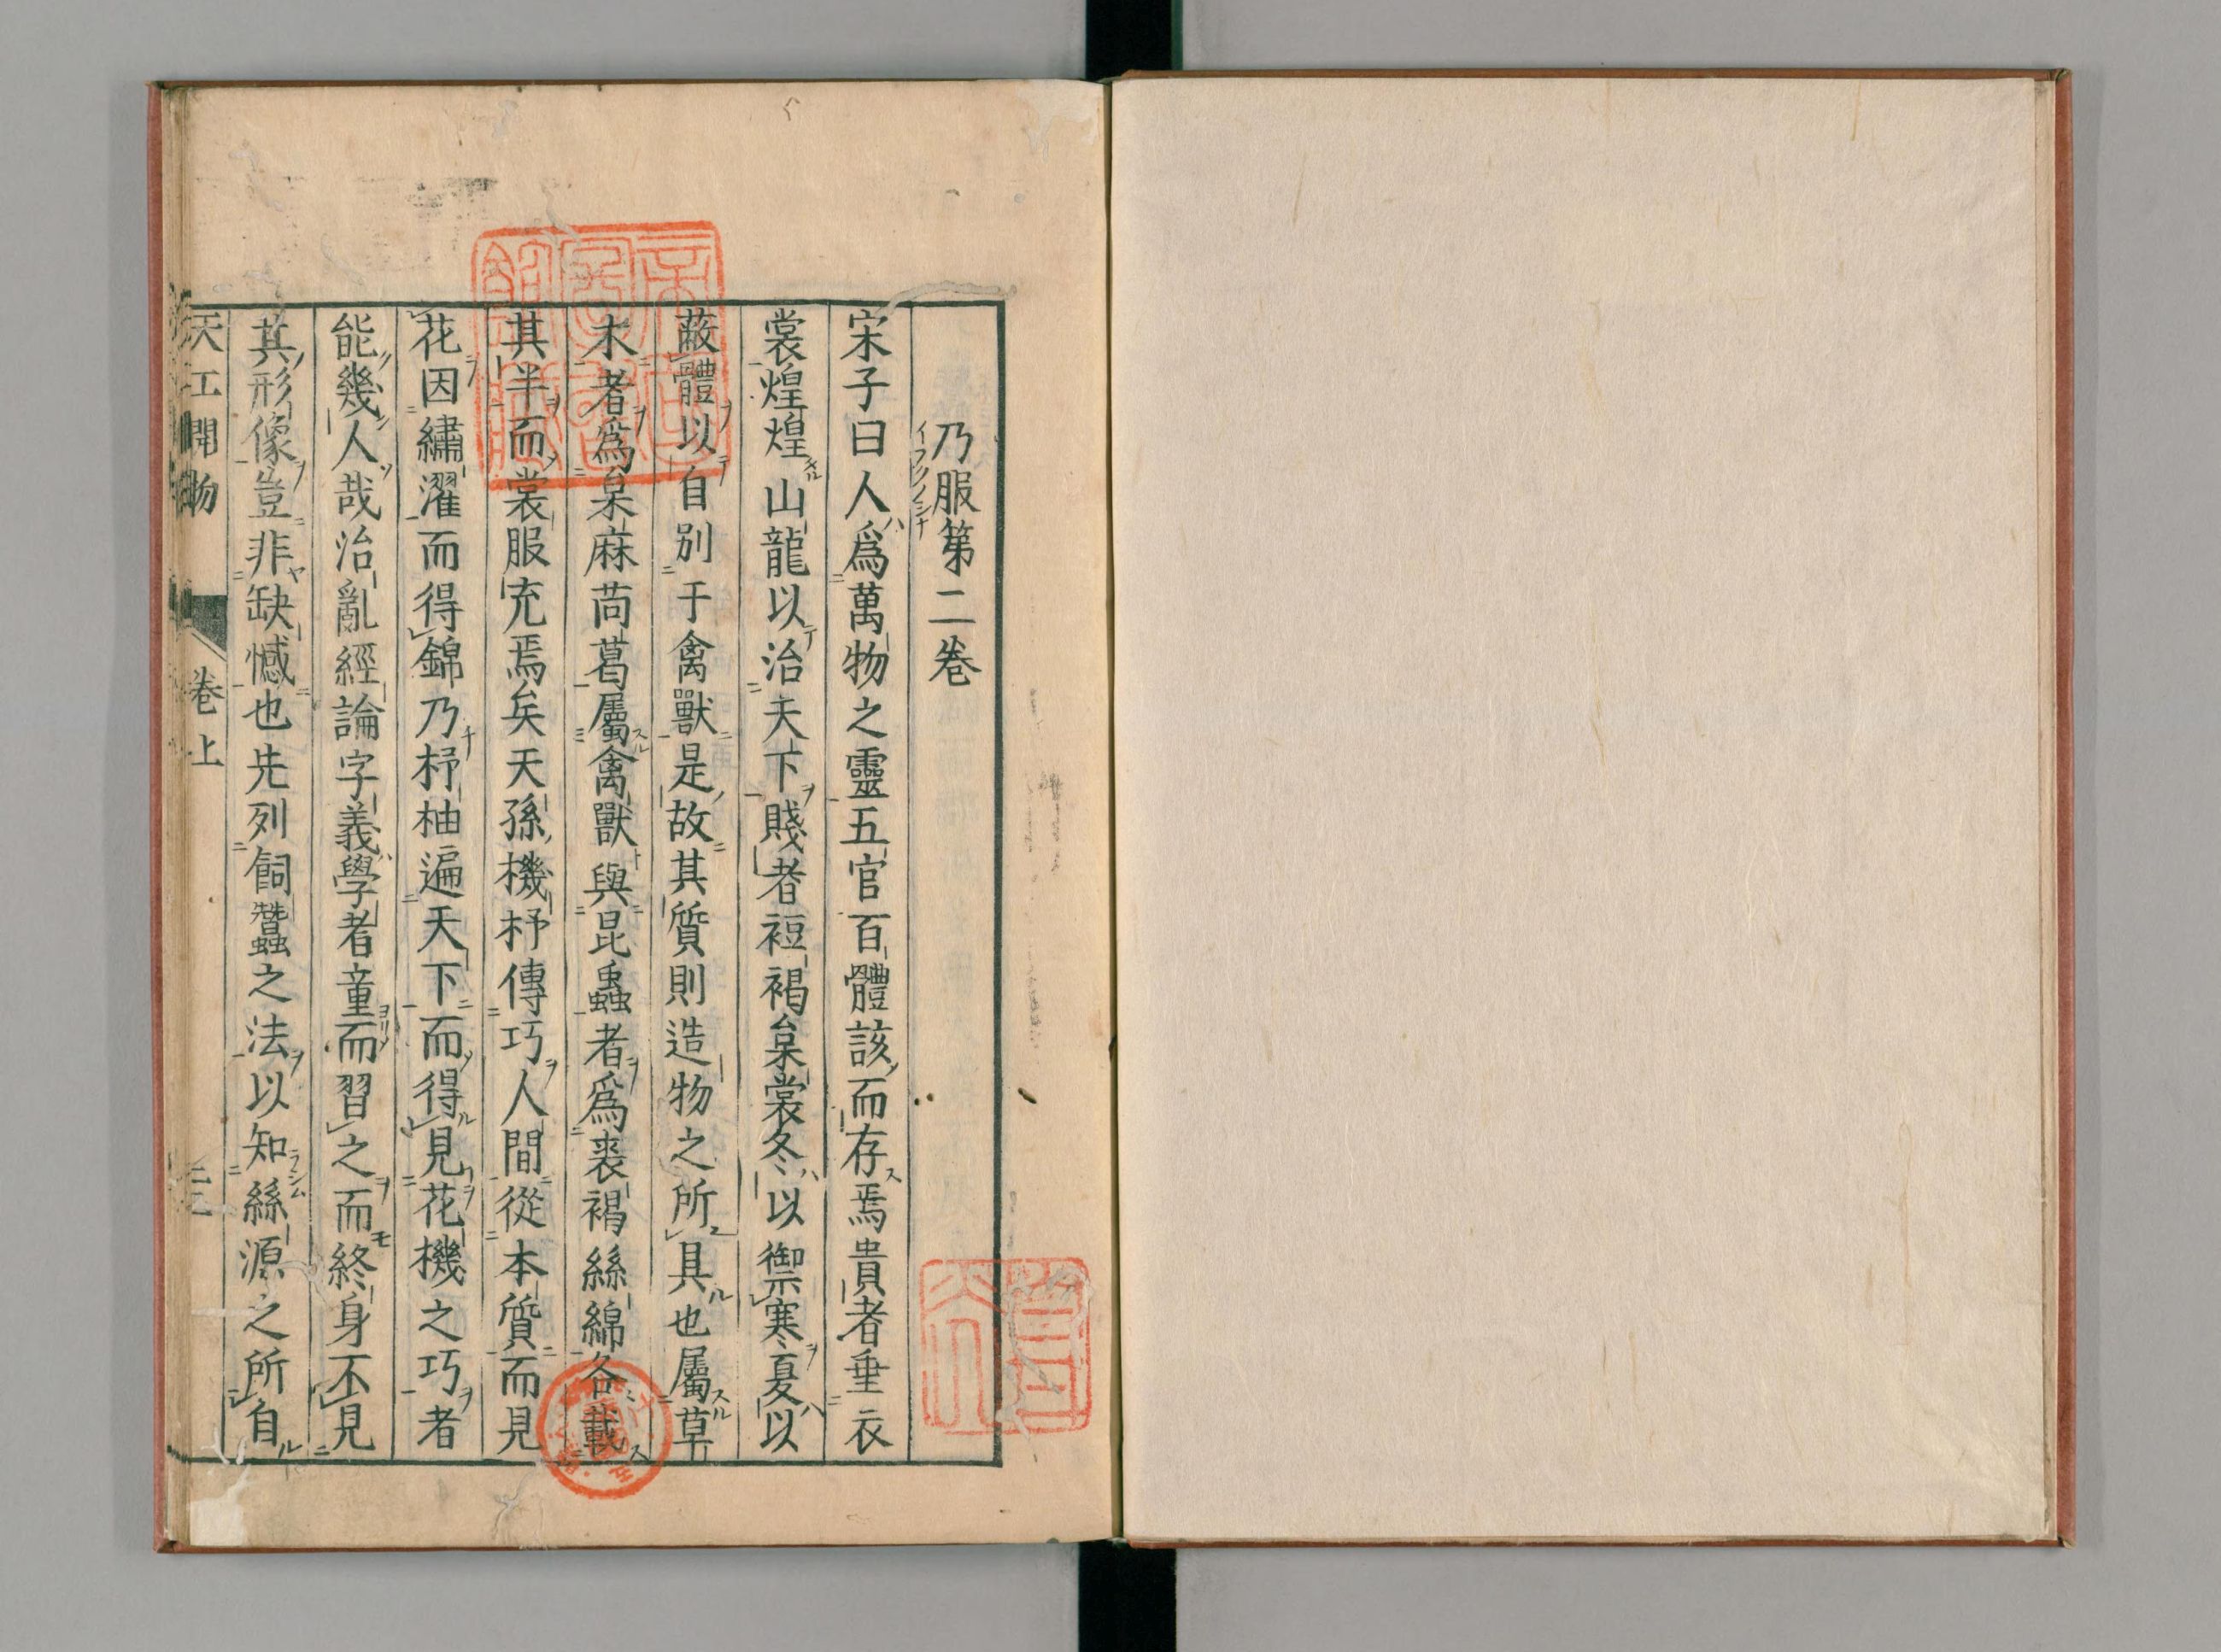 乃服第二卷
イフクノシナ
宋子曰人爲萬物之靈五官百體該而存焉貴者垂衣
裳煌煌山龍以治天下賤者裋褐枲裳冬以禦寒夏以
蔽體以自別于禽獸是故其質則造物之所具也屬草
木者爲枲麻苘葛屬禽獸與昆蟲者爲裘褐絲綿各載
其半而裳服充焉矣天孫機杼傳巧人間從本質而見
花因繡濯而得錦乃杼柚遍天下而得見花機之巧者
能幾人哉治亂經論字義學者童而習之而終身不見
其形像豈非缺憾也先列飼蠶之法以知絲源之所自
天工開物 卷上